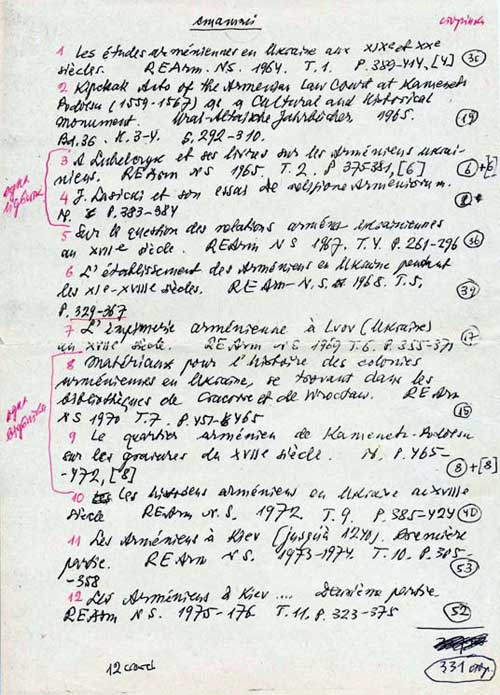 статті
сторінок
1 Les études arméniennes en Ukraine aux XIXe et XXe
siècles. REArm. NS. 1964. T.1. P. 389-414, [4] 36
2 Kipchak Acts of the Armenian Law Court at Kamenets
Podolsu (1559-1567) as a Cultural and Historical
monument. Ural-Altaische Jahrbücher 1965.
Bd.36. H.3-4. S.292-310. 19
3 A. Lubelczyk et ses livres sur les Arméniens ukrai-
niens. REArm NS 1965. T.2. P 375-381, [6] 6+[6]
4 J. Lasicki et son essai de religione Armeniorum.
P. 383-384
5 Sur la question des relations arméno-ukrainiennes
au XVIIe siècle. REArm NS 1967. T.4. P. 261-296 36
6 L'établissement des Arméniens en Ukraine pendant
les XIe-XVIIIe siècles. REArm-N.S. 1968. T.5.
P. 329-367 39
7 L'imprimerie arménienne à Lvov (Ukraine)
au XVIIe siècle. REArm NS 1969 T.6. P. 355-371 17
8 Matériaux pour l'histoire des colonies
arméniennes en Ukraine, se trouvant dans les
bibliothèques de Cracovie et de Wrocław. REArm
NS 1970 T.7. P. 451-465 15
9 Le quartier arménien de Kamenets-Podolsu
sur les gravures du XVIIe siècle. P. 465-
-472, [8] 8+[8]
10 les arméniens en Ukraine au XVIIIe
siècle REArm N.S. 1972. T.9. P. 385-424 40
11 Les Arméniens à Kiev (jusqu'à 1240). Première
partie. REArm NS. 1973-1974. T.10. P. 305-
-358 53
12 Les Arméniens à Kiev .... Deuxième partie
REArm NS. 1975-176. T.11. P. 323-375 52
12 статей
331 стор.
одна
одна